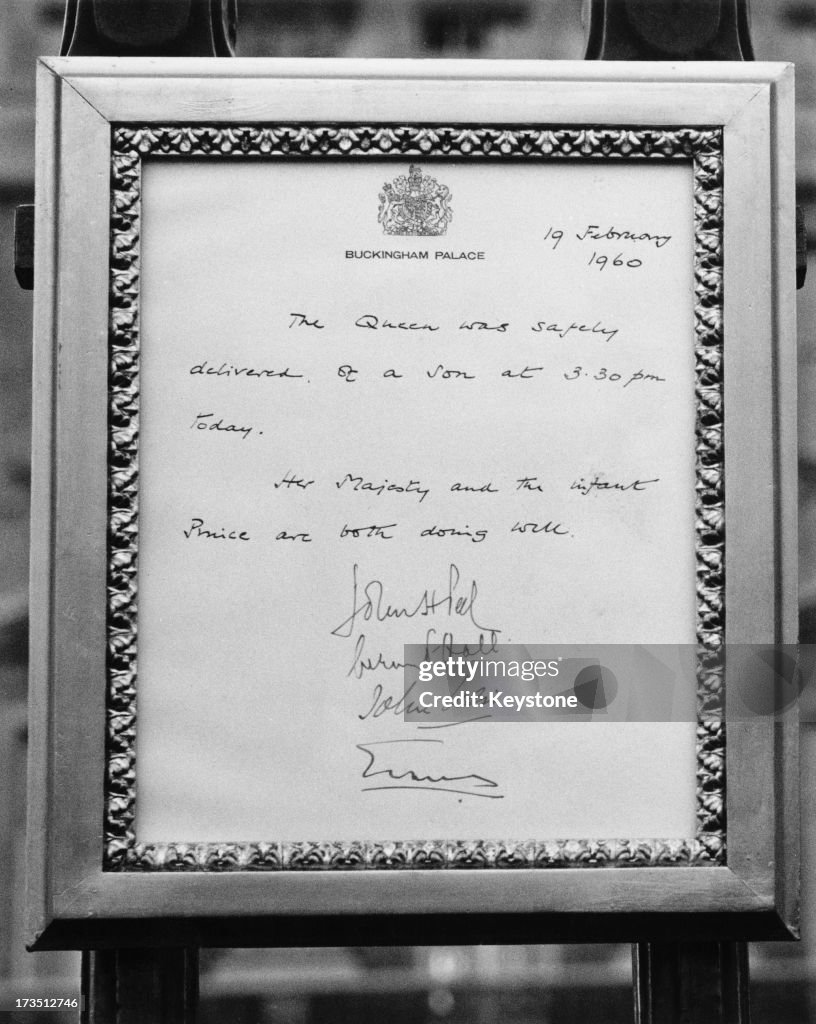 19 February
1960
BUCKINGHAM PALACE
The Queen was safely
delivered. of a son at 3.30 pm
today.
Her Majesty and the infant
Prince are both doing well.
John H Peel
Hall
John
Evans
gettyimages®
Credit: Keystone
173512746